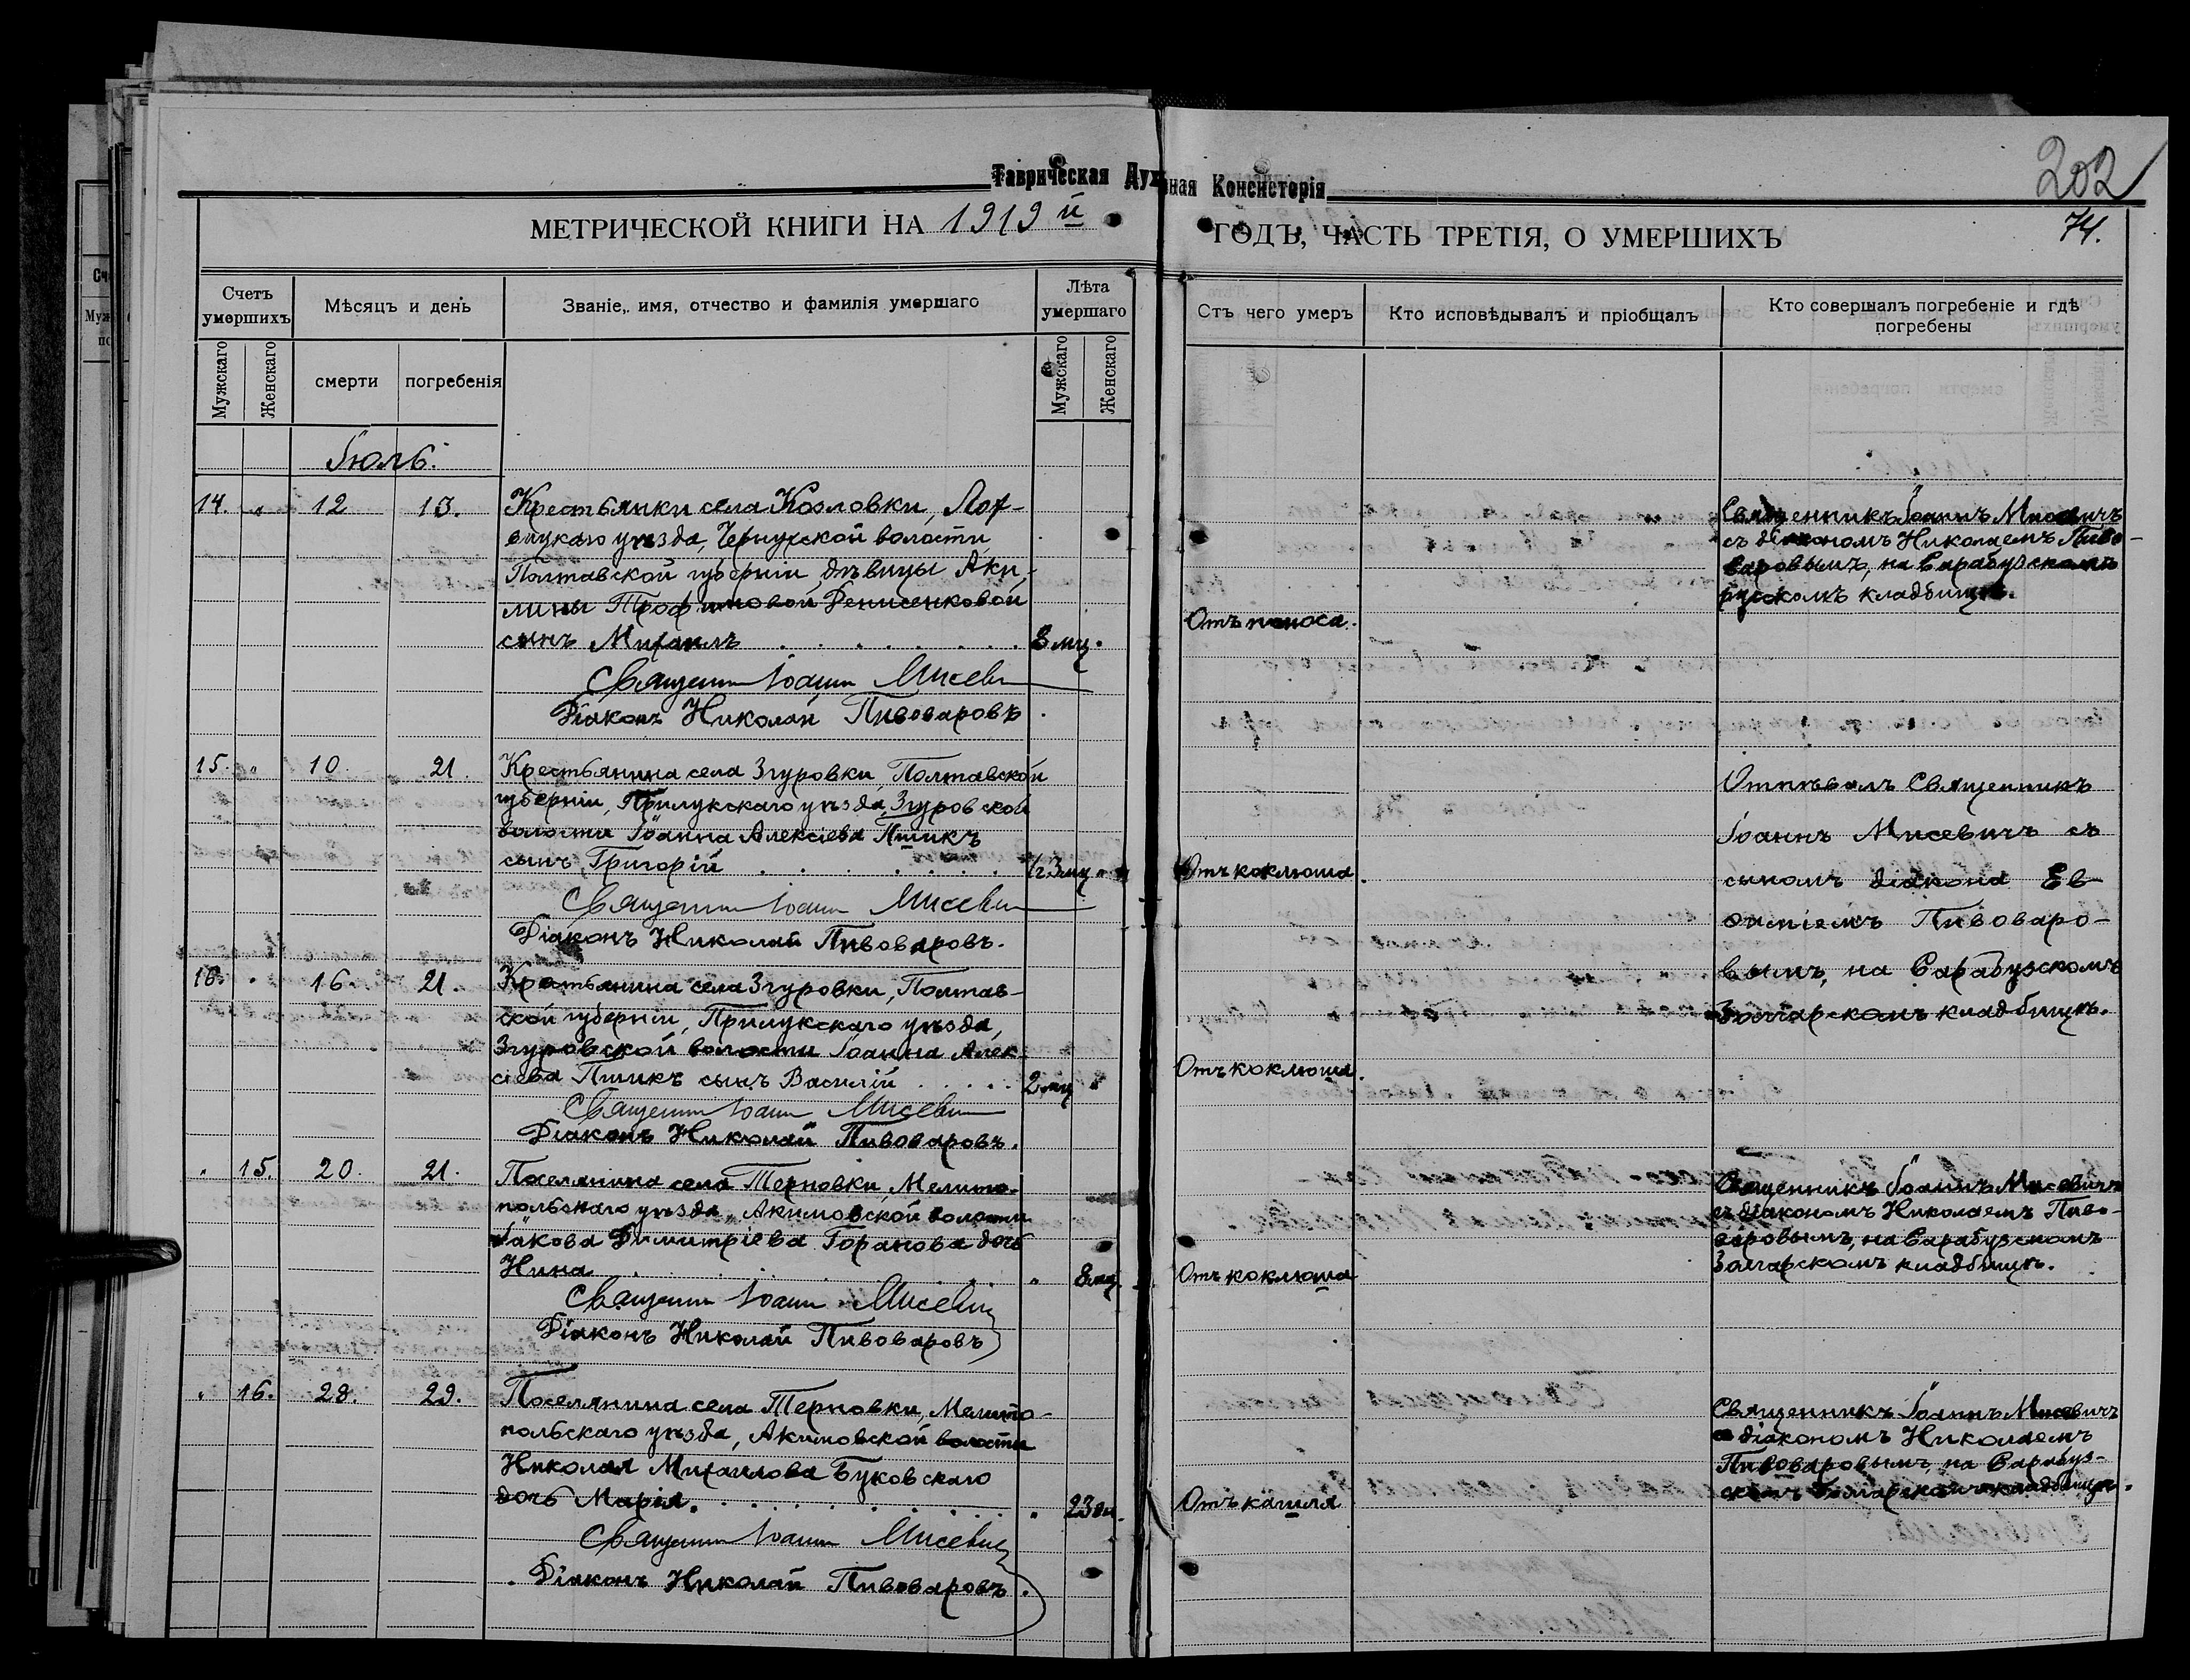 202
Таврическая Духовная Консисторія
74.
МЕТРИЧЕСКОЙ КНИГИ НА 1919й ГОДЪ, ЧАСТЬ ТРЕТІЯ, О УМЕРШИХЪ
Счетъ умершихъ
Мѣсяцъ и день
Званіе, имя, отчество и фамилія умершаго
Лѣта умершаго
Отъ чего умеръ
Кто исповѣдывалъ и пріобщалъ
Кто совершалъ погребеніе и гдѣ погребены
Мужскаго
Женскаго
смерти
погребенія
Мужскаго
Женскаго
Іюль.
14. " 12 13.
Крестьянки села Козловки, Лох-
вицкаго уѣзда, Чернухской волости
Полтавской губерніи дѣвицы Аки-
лины Трофимовой Денисенковой
сынъ Михаилъ 8 мц.
Отъ поноса.
Священникъ Іоаннъ Мисевичъ
съ діакономъ Николаемъ Пиво-
варовымъ, на Сарабузскомъ
русскомъ кладбищѣ.
Священник Іоанн Мисевич
Діаконъ Николай Пивоваровъ
15. " 10. 21.
Крестьянина села Згуровки Полтавской
губерніи, Прилукскаго уѣзда, Згуровской
волости Іоанна Алексіева Пшикъ
сынъ Григорій
Отъ коклюша.
Отпѣвалъ Священникъ
Іоаннъ Мисевичъ съ
сыномъ діакона Ев-
фиміемъ Пивоваро-
вымъ, на Сарабузскомъ
Болгарскомъ кладбищѣ.
Священник Іоанн Мисевич
Діаконъ Николай Пивоваровъ.
16. " 16. 21.
Крестьянина села Згуровки, Полтав-
ской губерніи, Прилукскаго уѣзда,
Згуровской волости Іоанна Алек-
сіева Пшикъ сынъ Василій 2 мц "
Отъ коклюша.
Священник Іоанн Мисевич
Діаконъ Николай Пивоваровъ.
" 15. 20. 21.
Поселянина села Терновки, Мелито-
польскаго уѣзда, Акимовской волости
Іакова Димитріева Горанова дочь
Нина " 8 мц.
Отъ коклюша
Священникъ Іоаннъ Мисевичъ
съ діакономъ Николаемъ Пиво-
варовымъ, на Сарабузскомъ
Болгарскомъ кладбищѣ.
Священник Іоанн Мисевич
Діаконъ Николай Пивоваровъ
" 16. 28. 29.
Поселянина села Терновки, Мелито-
польскаго уѣзда, Акимовской волости
Николая Михаилова Буковскаго
дочь Марія. " 23 дн.
Отъ кашля
Священникъ Іоаннъ Мисевичъ
съ діакономъ Николаемъ
Пивоваровымъ, на Сарабуз-
скомъ Болгарскомъ кладбищѣ.
Священник Іоанн Мисевич
Діаконъ Николай Пивоваровъ.